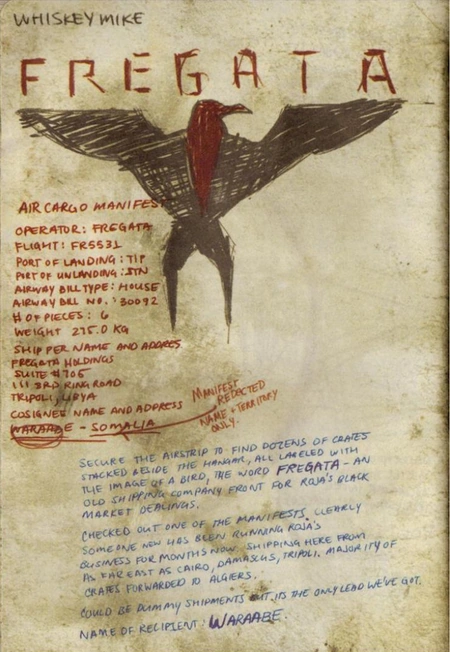 WHISKEY MIKE
FREGATA
AIR CARGO MANIFEST
OPERATOR: FREGATA
FLIGHT: FR5531
PORT OF LANDING: TIP
PORT OF UNLANDING: STN
AIRWAY BILL TYPE: HOUSE
AIRWAY BILL NO.: 30092
# OF PIECES: 6
WEIGHT 275.0 KG
SHIPPER NAME AND ADDRES
FREGATA HOLDINGS
SUITE #705
111 3RD RING ROAD
TRIPOLI, LIBYA
COSIGNEE NAME AND ADDRESS
WARAABE - SOMALIA
MANIFEST
REDACTED
NAME + TERRITORY
ONLY.
SECURE THE AIRSTRIP TO FIND DOZENS OF CRATES
STACKED BESIDE THE HANGAR, ALL LABELED WITH
THE IMAGE OF A BIRD, THE WORD FREGATA - AN
OLD SHIPPING COMPANY FRONT FOR ROJA'S BLACK
MARKET DEALINGS.
CHECKED OUT ONE OF THE MANIFESTS. CLEARLY
SOMEONE NEW HAS BEEN RUNNING ROJA'S
BUSINESS FOR MONTHS NOW. SHIPPING HERE FROM
AS FAR EAST AS CAIRO, DAMASCUS, TRIPOLI. MAJORITY OF
CRATES FORWARDED TO ALGIERS.
COULD BE DUMMY SHIPMENTS BUT ITS THE ONLY LEAD WE'VE GOT.
NAME OF RECIPIENT: WARAABE.